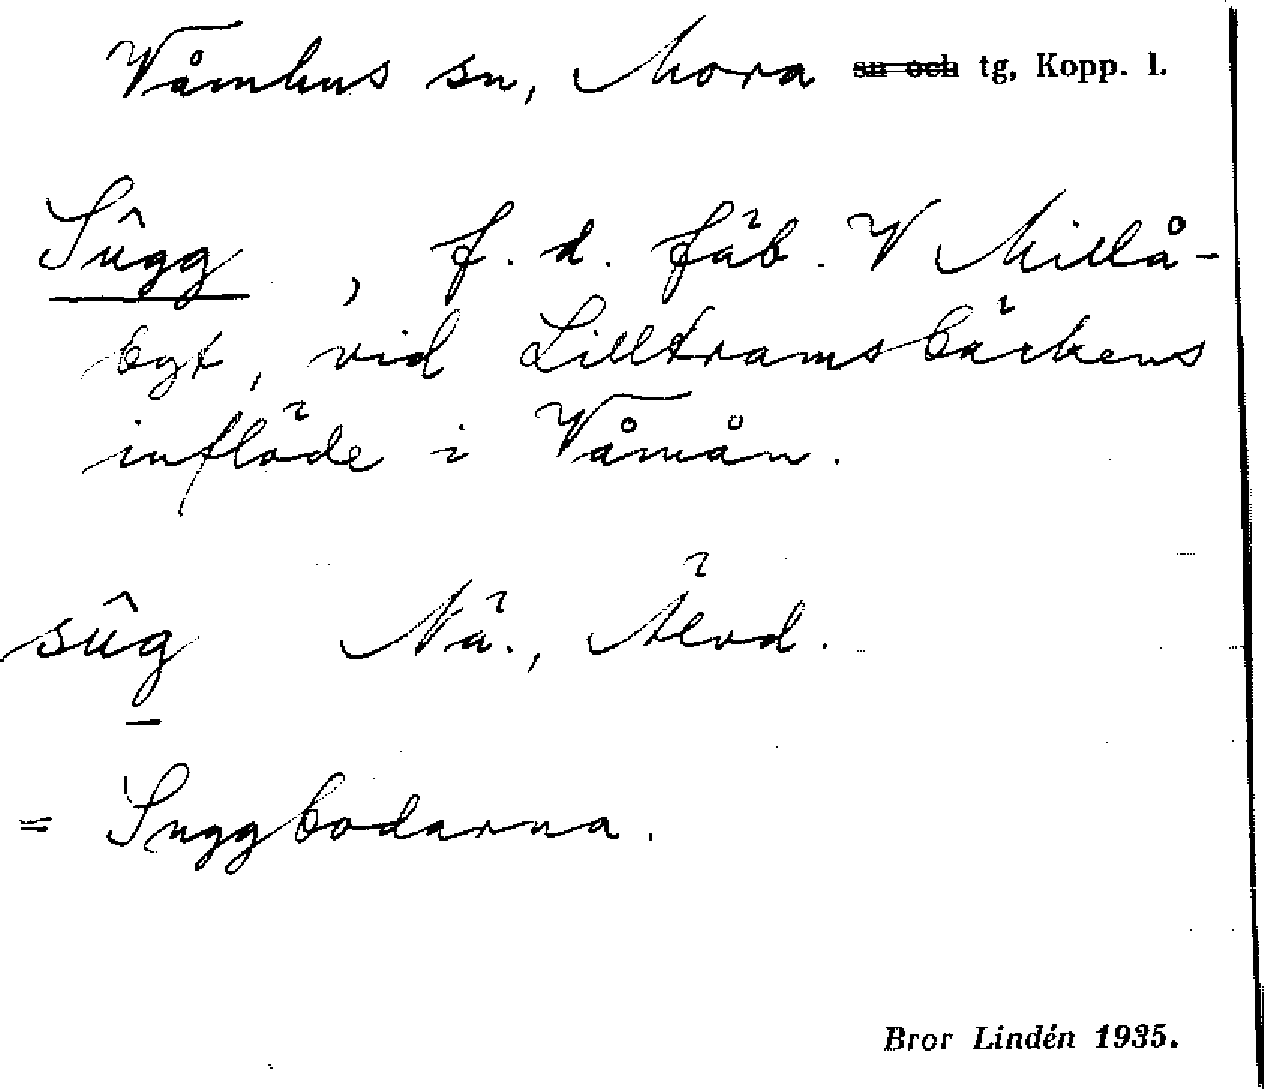 Våmhus sn, Mora ~~sn och~~ tg, Kopp. l.
Sûgg, f. d. fäb. V Millå-
bgt, vid Lilltramsbäckens
inflöde i Våmån.
sûg Nä., Älvd.
= Suggbodarna.
Bror Lindén 1935.